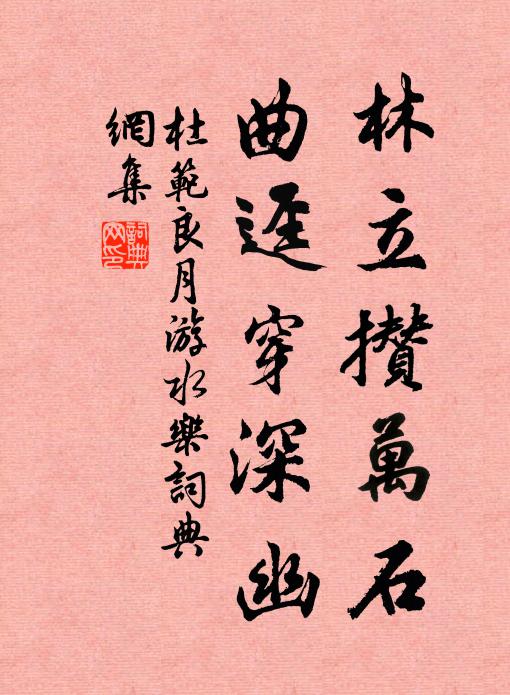 林立攢萬石
曲逕穿深幽
杜範良月游水樂詞典
網集
詞典
网印